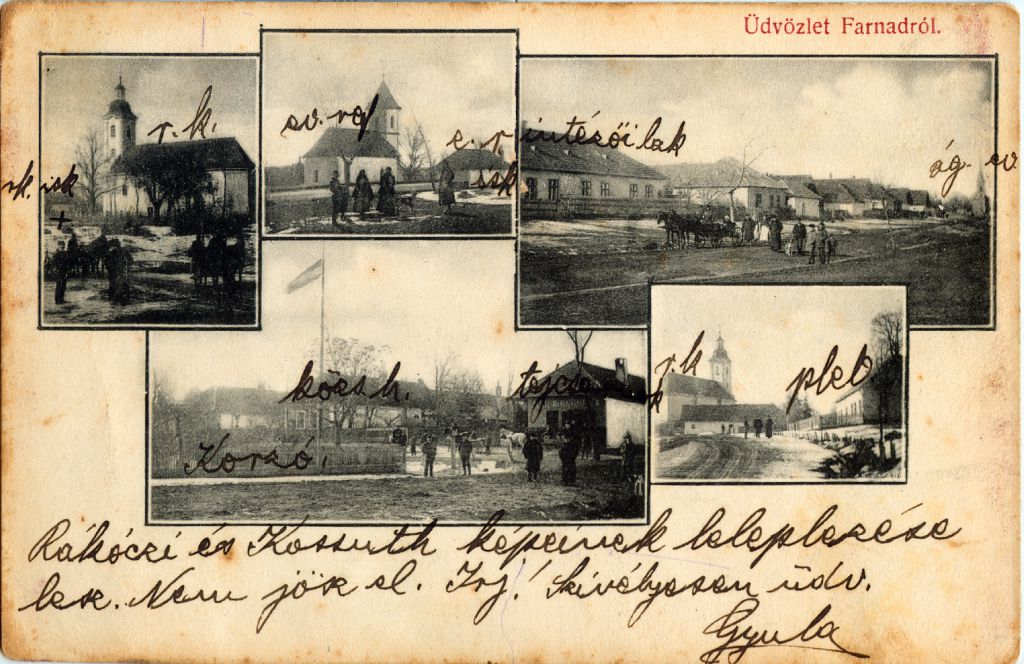 Üdvözlet Farnadról.
r. k.
rk. isk
+
ev. ref
e. r
isk
intézői lak
ág. ev.
közs h.
Korzó.
tejcsa
r. k
pleb
Rákóczi és Kossuth képeinek leleplezése
lesz. Nem jösz el. Irj! Szívélyesen üdv.
Gyula